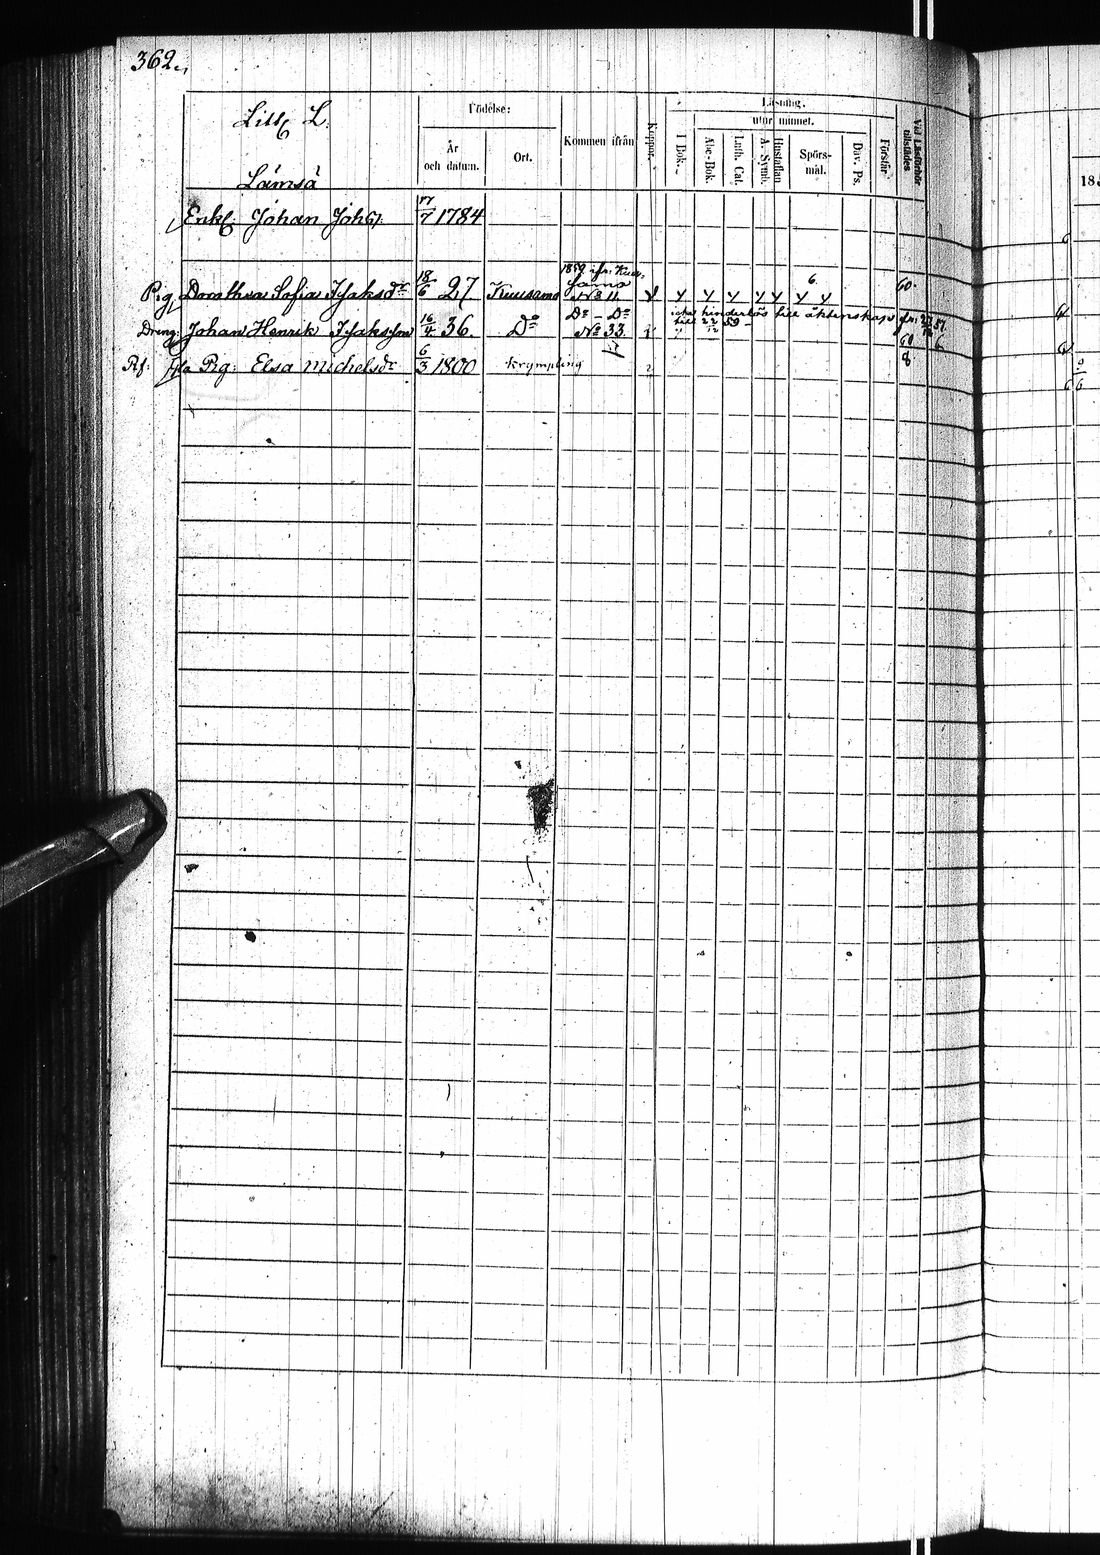 362.
Litt. L. Födelse: Kommen ifrån Koppor. Läsning. Vid Läsförhör tillstädes
utur minnet.
År och datum. Ort. I Bok. Abc-Bok. Luth. Cat. Hustaflan A. Symb. Spörsmål. Dav. Ps. Förstår
Lämsä 185
Enkl: Johan Johs: 17/7 1784
1859 ifr. Kuusamo
Pig. Dorothea Sofia Isaksdr 18/6 27 Kuusamo No 11. 6 60.
Dreng. Johan Henrik Isaksson 16/4 36. Do Do - Do No 33. icke hinderlös till äktenskap fr.
till 59 -
60 6.
Rf: Pig: Elsa Michelsdr 6/3 1800 Krympling 8